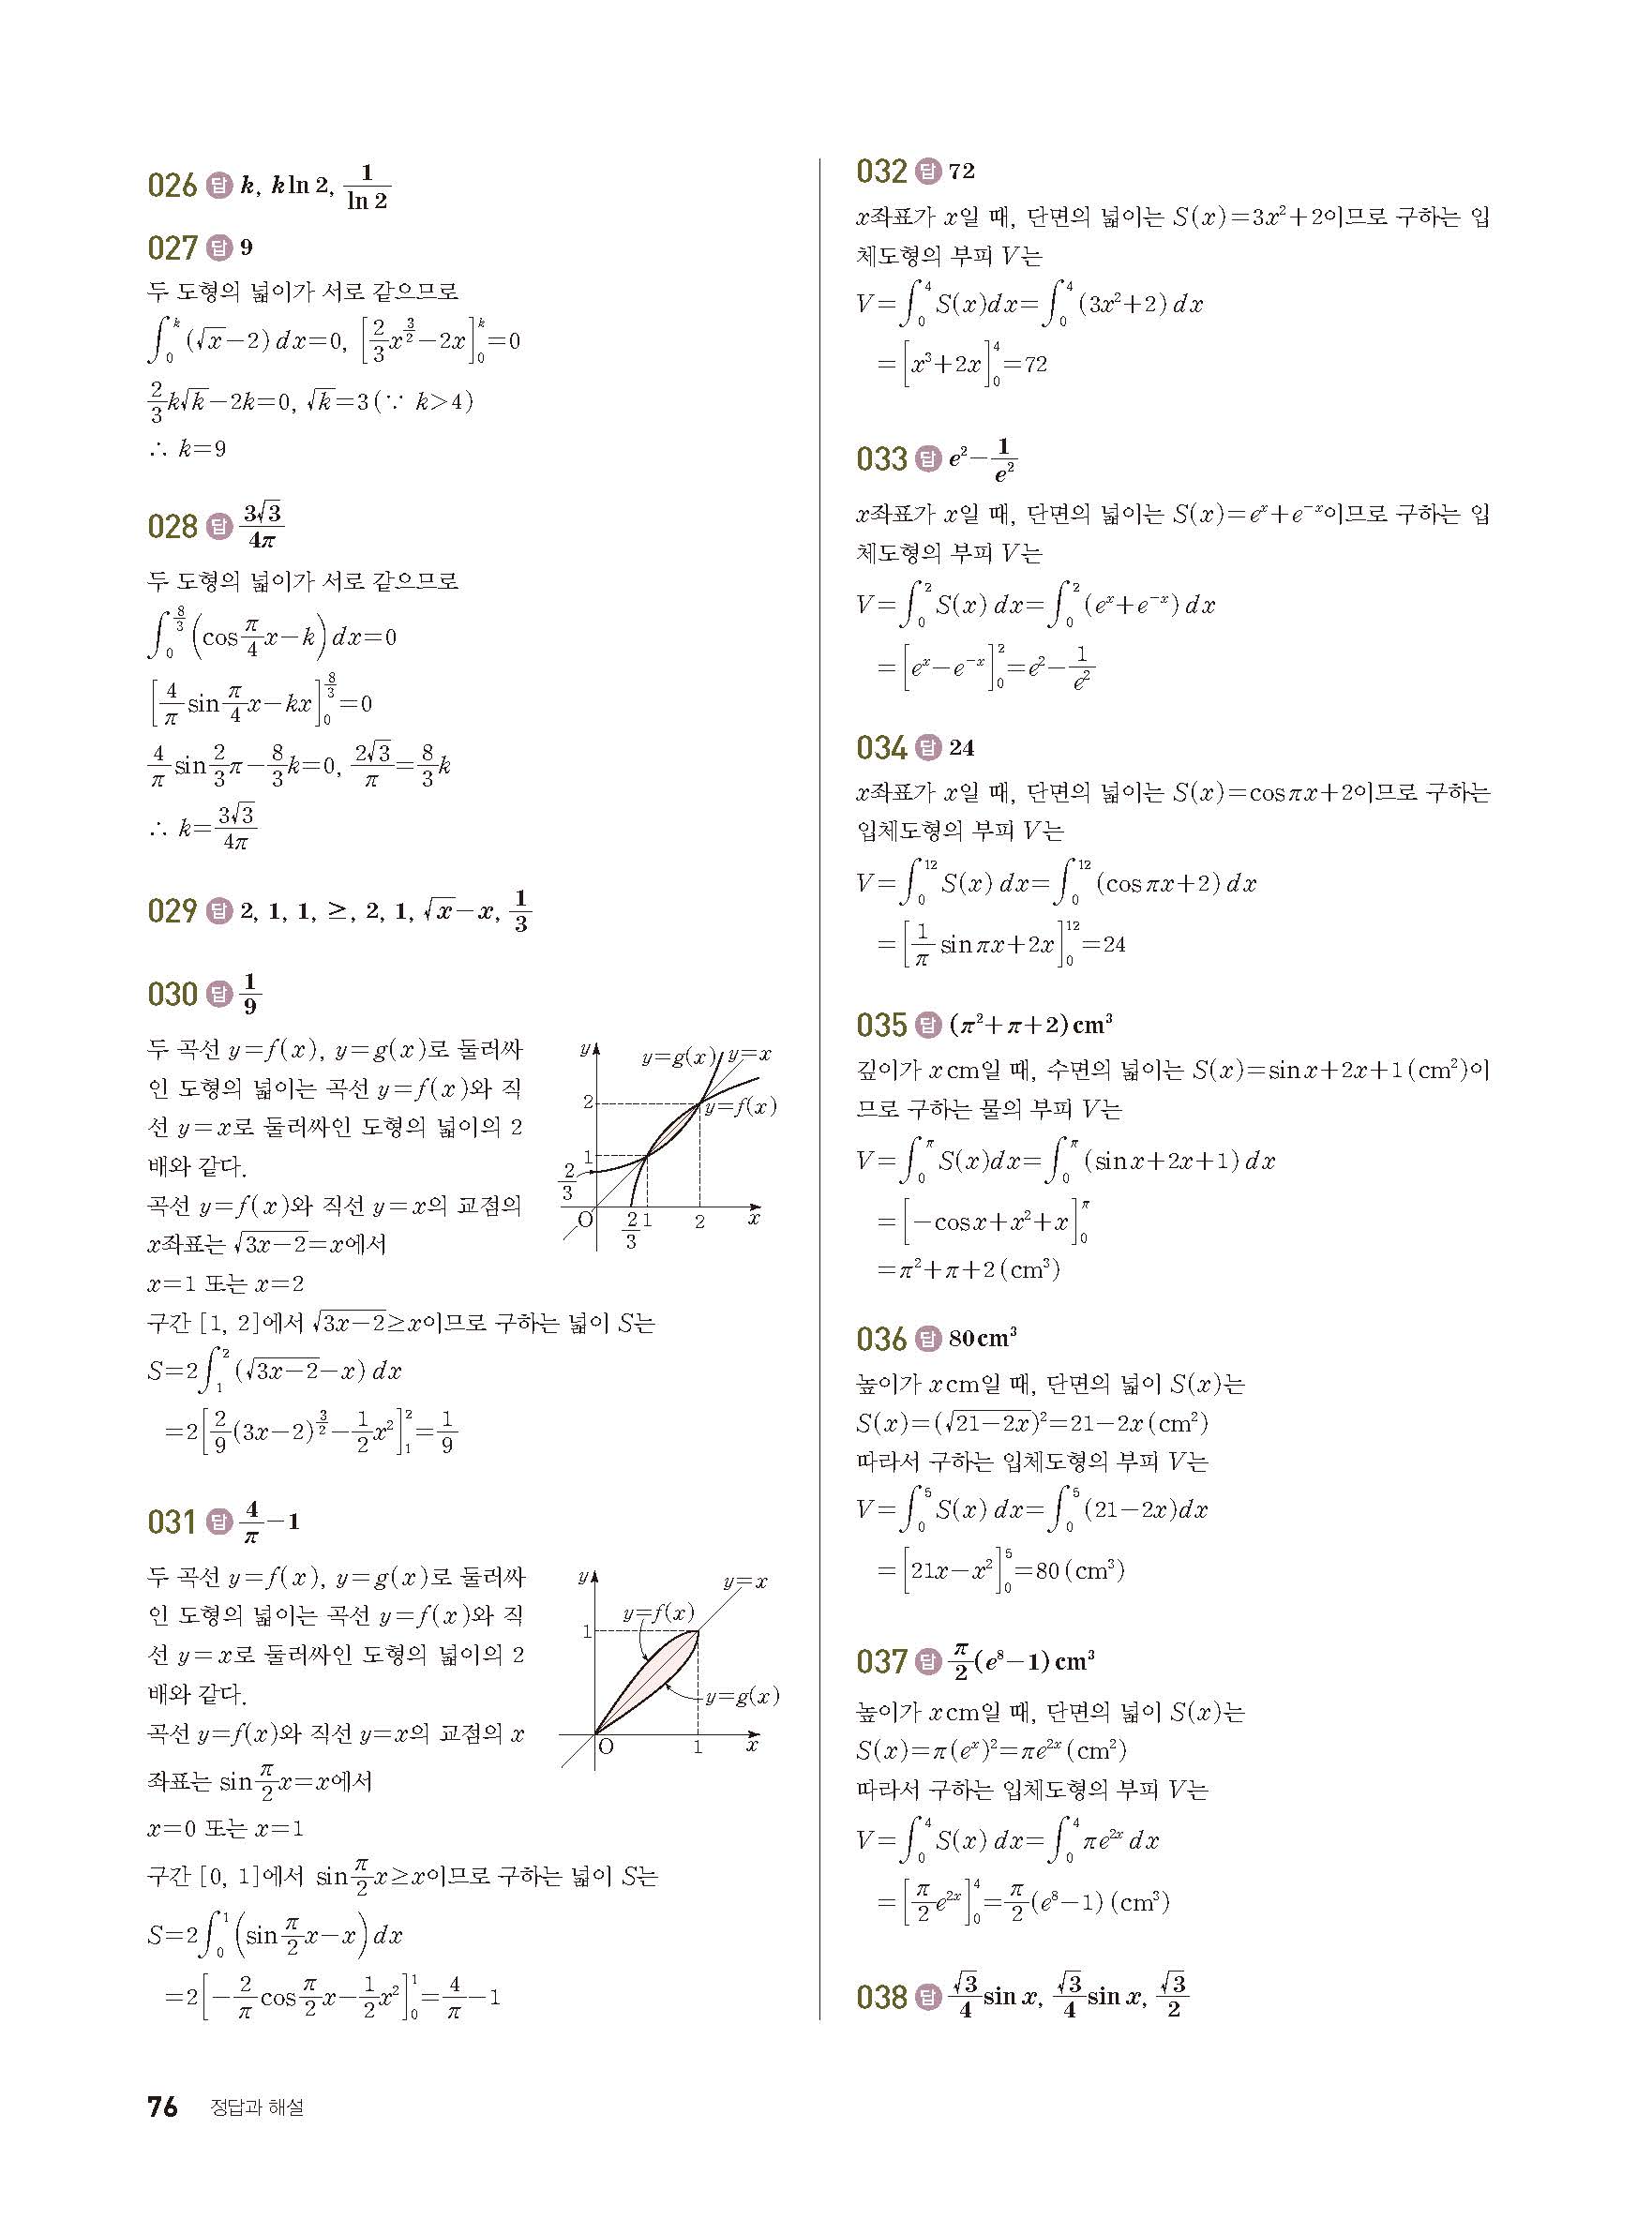 026 답 k, k ln 2, 1/ln 2
027 답 9
두 도형의 넓이가 서로 같으므로
∫₀ᵏ (√x−2) dx=0, [2/3 x^(3/2)−2x]₀ᵏ=0
2/3 k√k−2k=0, √k=3 (∵ k>4)
∴ k=9
028 답 3√3/4π
두 도형의 넓이가 서로 같으므로
∫₀^(8/3) (cos π/4 x−k) dx=0
[4/π sin π/4 x−kx]₀^(8/3)=0
4/π sin 2/3 π−8/3 k=0, 2√3/π=8/3 k
∴ k=3√3/4π
029 답 2, 1, 1, ≥, 2, 1, √x−x, 1/3
030 답 1/9
두 곡선 y=f(x), y=g(x)로 둘러싸
인 도형의 넓이는 곡선 y=f(x)와 직
선 y=x로 둘러싸인 도형의 넓이의 2
배와 같다.
곡선 y=f(x)와 직선 y=x의 교점의
x좌표는 √(3x−2)=x에서
x=1 또는 x=2
y
y=g(x) y=x
2
y=f(x)
1
2/3
O 2/3 1 2 x
구간 [1, 2]에서 √(3x−2)≥x이므로 구하는 넓이 S는
S=2∫₁² (√(3x−2)−x) dx
=2[2/9 (3x−2)^(3/2)−1/2 x²]₁²=1/9
031 답 4/π−1
두 곡선 y=f(x), y=g(x)로 둘러싸
인 도형의 넓이는 곡선 y=f(x)와 직
선 y=x로 둘러싸인 도형의 넓이의 2
배와 같다.
곡선 y=f(x)와 직선 y=x의 교점의 x
좌표는 sin π/2 x=x에서
x=0 또는 x=1
y
y=x
y=f(x)
1
y=g(x)
O 1 x
구간 [0, 1]에서 sin π/2 x≥x이므로 구하는 넓이 S는
S=2∫₀¹ (sin π/2 x−x) dx
=2[−2/π cos π/2 x−1/2 x²]₀¹=4/π−1
032 답 72
x좌표가 x일 때, 단면의 넓이는 S(x)=3x²+2이므로 구하는 입
체도형의 부피 V는
V=∫₀⁴ S(x)dx=∫₀⁴ (3x²+2) dx
=[x³+2x]₀⁴=72
033 답 e²−1/e²
x좌표가 x일 때, 단면의 넓이는 S(x)=eˣ+e⁻ˣ이므로 구하는 입
체도형의 부피 V는
V=∫₀² S(x) dx=∫₀² (eˣ+e⁻ˣ) dx
=[eˣ−e⁻ˣ]₀²=e²−1/e²
034 답 24
x좌표가 x일 때, 단면의 넓이는 S(x)=cos πx+2이므로 구하는
입체도형의 부피 V는
V=∫₀¹² S(x) dx=∫₀¹² (cos πx+2) dx
=[1/π sin πx+2x]₀¹²=24
035 답 (π²+π+2) cm³
깊이가 x cm일 때, 수면의 넓이는 S(x)=sin x+2x+1 (cm²)이
므로 구하는 물의 부피 V는
V=∫₀^π S(x)dx=∫₀^π (sin x+2x+1) dx
=[−cos x+x²+x]₀^π
=π²+π+2 (cm³)
036 답 80 cm³
높이가 x cm일 때, 단면의 넓이 S(x)는
S(x)=(√(21−2x))²=21−2x (cm²)
따라서 구하는 입체도형의 부피 V는
V=∫₀⁵ S(x) dx=∫₀⁵ (21−2x)dx
=[21x−x²]₀⁵=80 (cm³)
037 답 π/2 (e⁸−1) cm³
높이가 x cm일 때, 단면의 넓이 S(x)는
S(x)=π(eˣ)²=πe²ˣ (cm²)
따라서 구하는 입체도형의 부피 V는
V=∫₀⁴ S(x) dx=∫₀⁴ πe²ˣ dx
=[π/2 e²ˣ]₀⁴=π/2 (e⁸−1) (cm³)
038 답 √3/4 sin x, √3/4 sin x, √3/2
76 정답과 해설